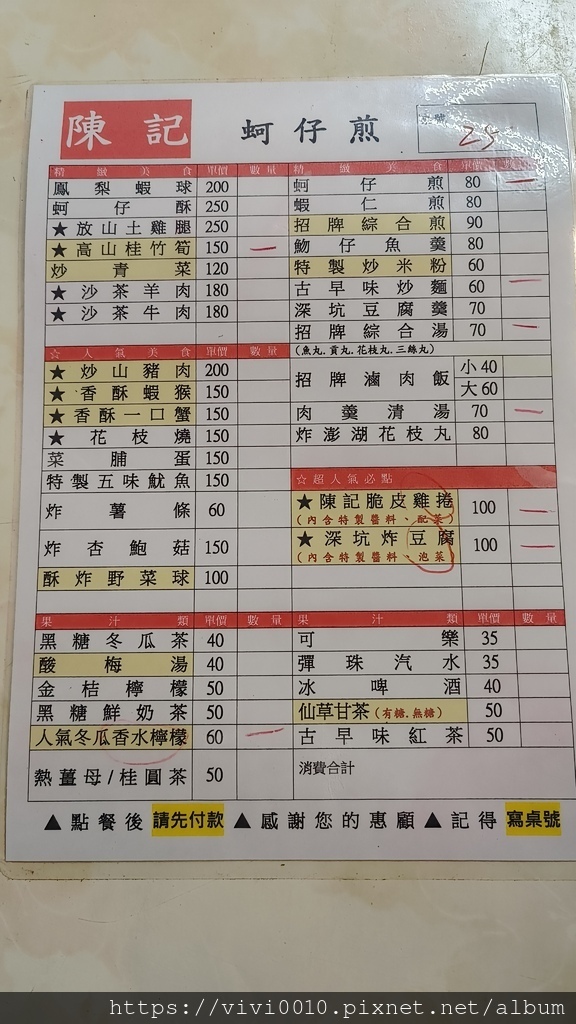 陳記 蚵仔煎 25
精緻美食 單價 數量
鳳梨蝦球 200
蚵仔酥 250
★放山土雞腿 250
★高山桂竹筍 150 一
炒青菜 120
★沙茶羊肉 180
★沙茶牛肉 180
☆人氣美食 單價 數量
★炒山豬肉 200
★香酥蝦猴 150
★香酥一口蟹 150
★花枝燒 150
菜脯蛋 150
特製五味魷魚 150
炸薯條 60
炸杏鮑菇 150
酥炸野菜球 100
果汁類 單價 數量
黑糖冬瓜茶 40
酸梅湯 40
金桔檸檬 50
黑糖鮮奶茶 50
人氣冬瓜香水檸檬 60 一
熱薑母/桂圓茶 50
精緻美食 單價
蚵仔煎 80 一
蝦仁煎 80
招牌綜合煎 90
魩仔魚羹 80
特製炒米粉 60
古早味炒麵 60 一
深坑豆腐羹 70
招牌綜合湯 70 一
(魚丸.貢丸.花枝丸.三絲丸)
招牌滷肉飯 小40
大60
肉羹清湯 70 一
炸澎湖花枝丸 80
☆超人氣必點
★陳記脆皮雞捲 100 一
(內含特製醬料、配菜)
★深坑炸豆腐 100 一
(內含特製醬料、泡菜)
果汁類 單價 數量
可樂 35
彈珠汽水 35
冰啤酒 40
仙草甘茶(有糖.無糖) 50
古早味紅茶 50
消費合計
▲點餐後 請先付款 ▲感謝您的惠顧 ▲記得 寫桌號
https://vivi0010.pixnet.net/album